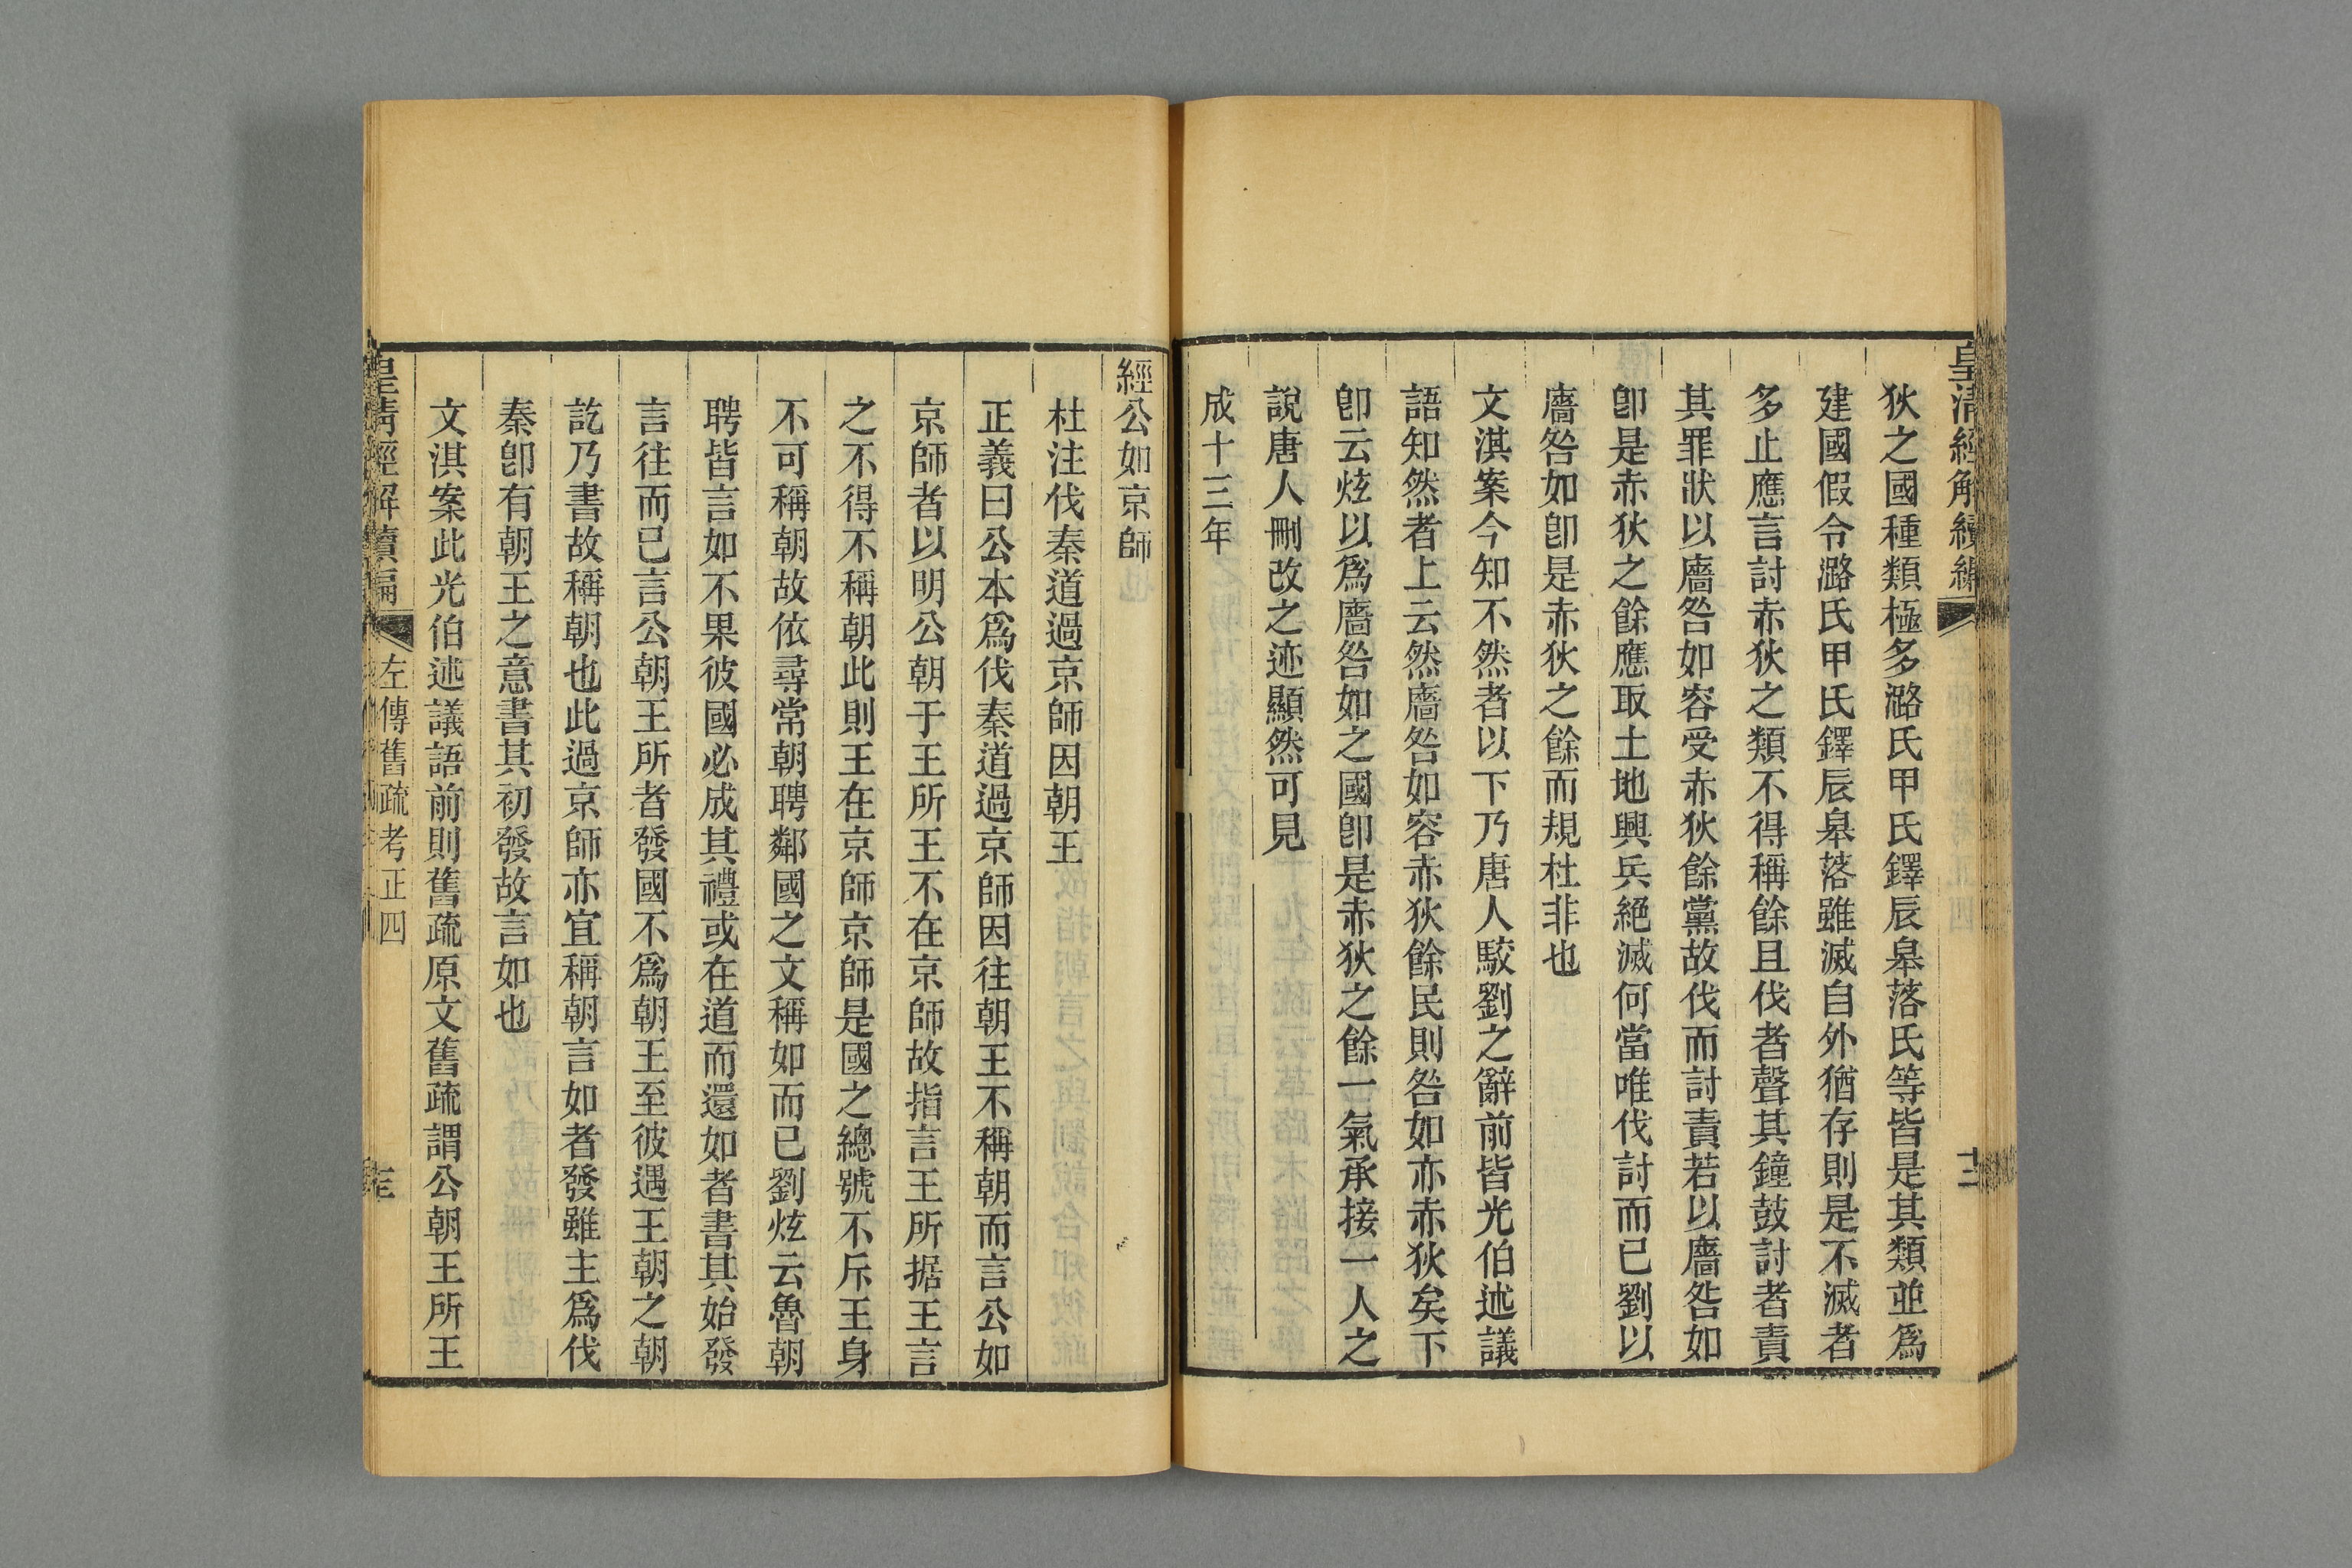 皇清經解續編
十二
狄之國種類極多潞氏甲氏鐸辰皋落氏等皆是其類並爲
建國假令潞氏甲氏鐸辰皋落雖滅自外猶存則是不滅者
多止應言討赤狄之類不得稱餘且伐者聲其鐘鼓討者責
其罪狀以廧咎如容受赤狄餘黨故伐而討責若以廧咎如
卽是赤狄之餘應取土地興兵絕滅何當唯伐討而已劉以
廧咎如卽是赤狄之餘而規杜非也
文淇案今知不然者以下乃唐人駮劉之辭前皆光伯述議
語知然者上云然廧咎如容赤狄餘民則咎如亦赤狄矣下
卽云炫以爲廧咎如之國卽是赤狄之餘一氣承接一人之
說唐人刪改之迹顯然可見
成十三年
經公如京師
杜注伐秦道過京師因朝王
正義曰公本爲伐秦道過京師因往朝王不稱朝而言公如
京師者以明公朝于王所王不在京師故指言王所据王言
之不得不稱朝此則王在京師京師是國之總號不斥王身
不可稱朝故依尋常朝聘鄰國之文稱如而已劉炫云魯朝
聘皆言如不果彼國必成其禮或在道而還如者書其始發
言往而已言公朝王所者發國不爲朝王至彼遇王朝之朝
訖乃書故稱朝也此過京師亦宜稱朝言如者發雖主爲伐
秦卽有朝王之意書其初發故言如也
文淇案此光伯述議語前則舊疏原文舊疏謂公朝王所王
皇清經解續編
左傳舊疏考正四